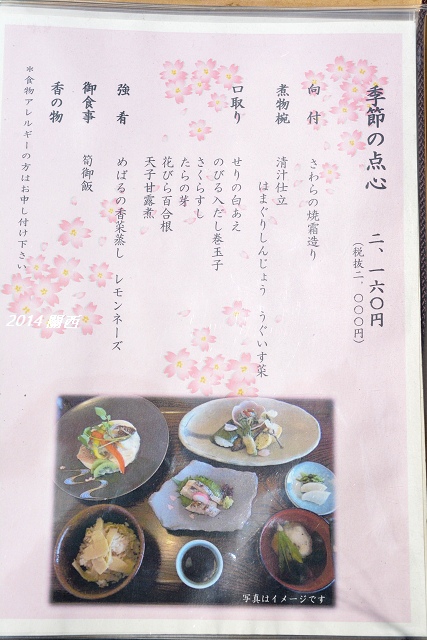 季節の点心
二、一六〇円
（税抜二、〇〇〇円）
向付
さわらの焼霜造り
煮物椀
清汁仕立
はまぐりしんじょう うぐいす菜
口取り
せりの白あえ
のびる入だし巻玉子
さくらすし
たらの芽
花びら百合根
天子甘露煮
強肴
めばるの香菜蒸し レモンネーズ
御食事
筍御飯
香の物
＊食物アレルギーの方はお申し付け下さい。
2014 關西
写真はイメージです